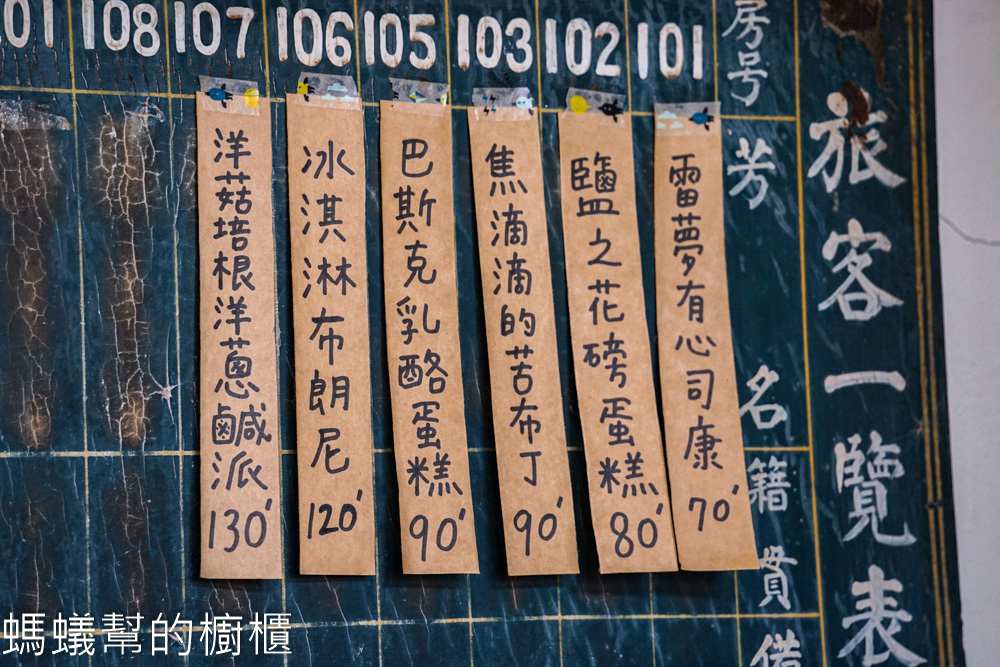 旅客一覽表
房号
芳名
籍貫
備
101
102
103
105
106
107
108
101
雷夢有心司康70'
鹽之花磅蛋糕80'
焦滴滴的苦布丁90'
巴斯克乳酪蛋糕90'
冰淇淋布朗尼120'
洋菇培根洋蔥鹹派130'
螞蟻幫的櫥櫃